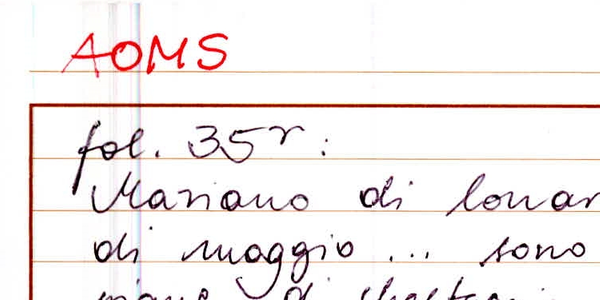 AOMS
fol. 35r:
Mariano di
di maggio ... sono
di